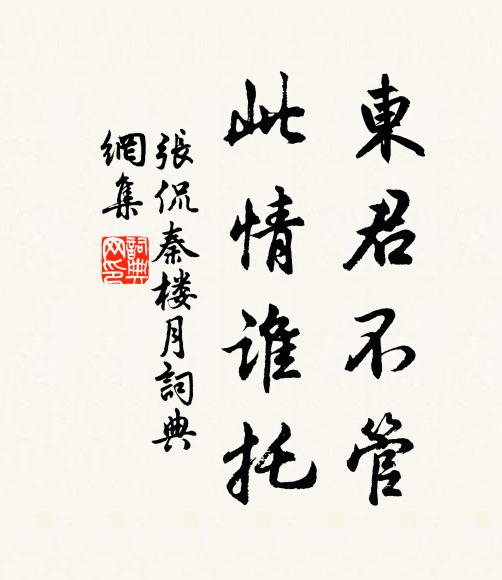 東君不管
此情谁托
張侃秦楼月詞典
網集
詞典
网印